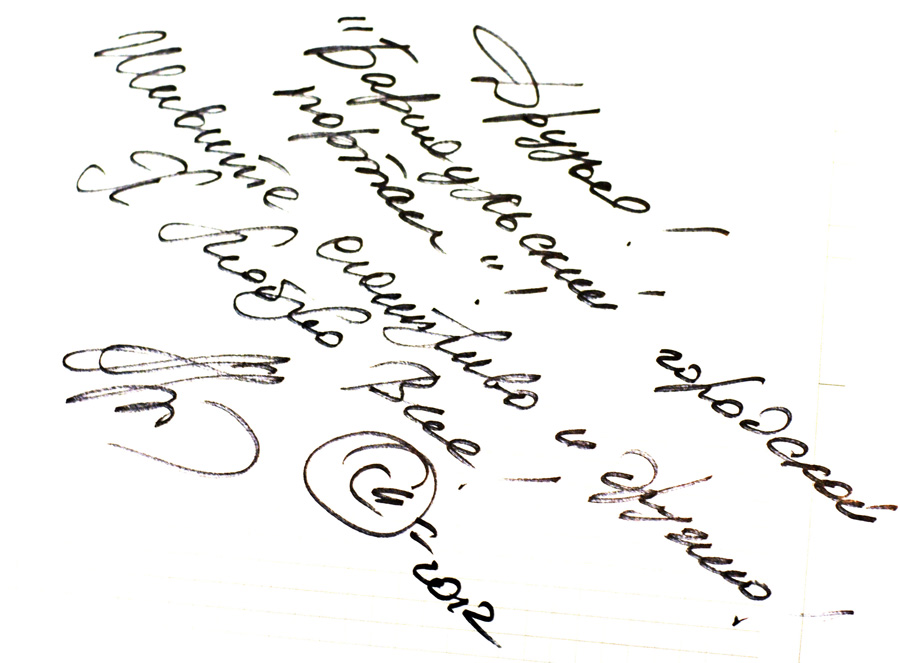 Друзья!
"Барнаульский городской
портал"!
Живите счастливо и дружно!
Я Люблю Вас!
2012